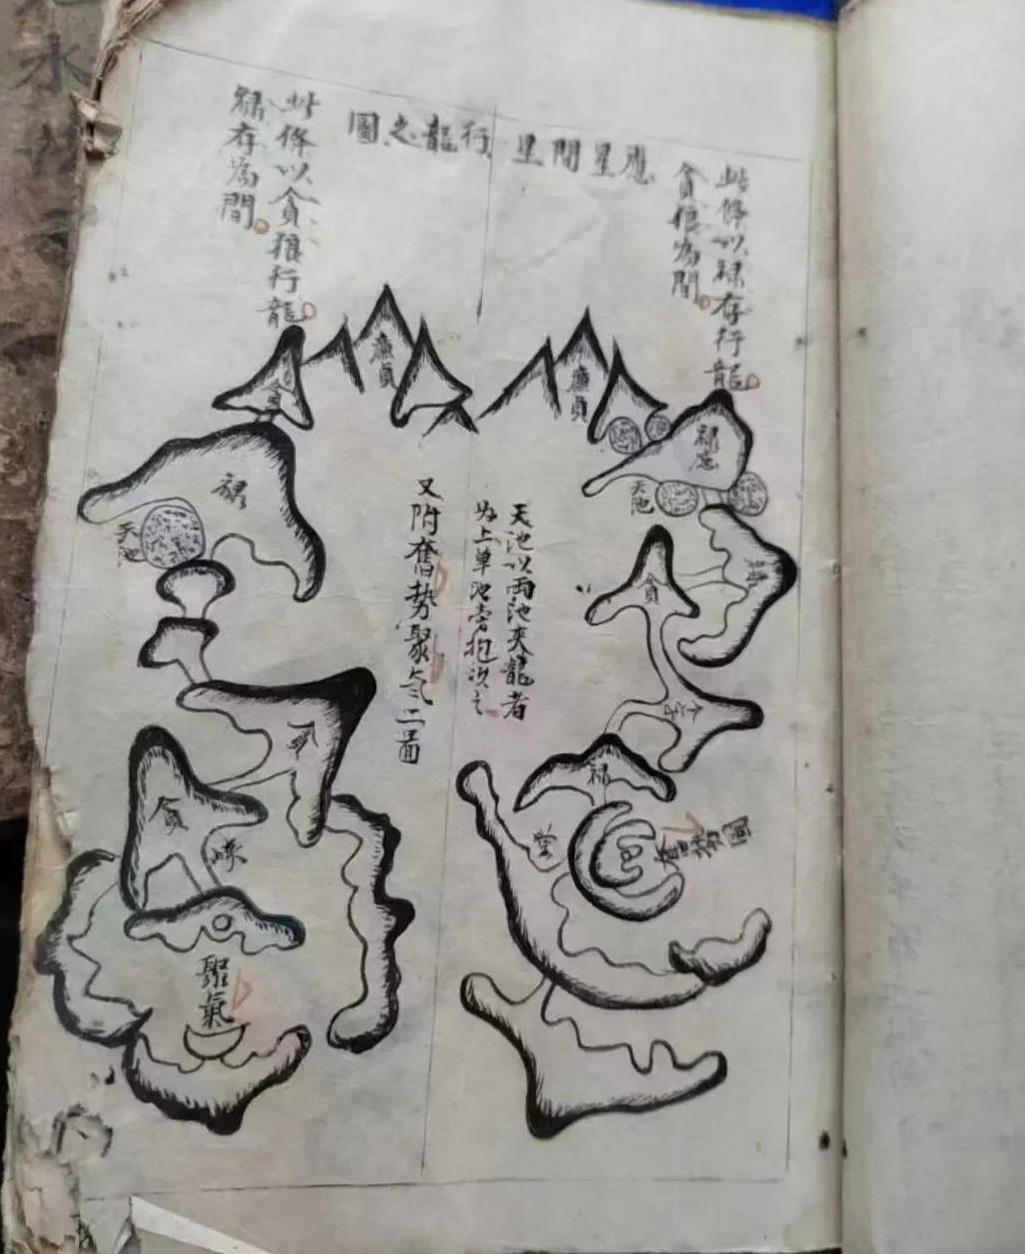 應星間星行龍之圖
此條以祿存行龍
貪狼為間
廉貞
祿
天池
貪
祿
堂
天池以兩池夾龍者
為上單池旁抱次之
又附奮勢聚氣二圖
此條以貪狼行龍
祿存為間
廉貞
貪
祿
天池
貪
聚氣